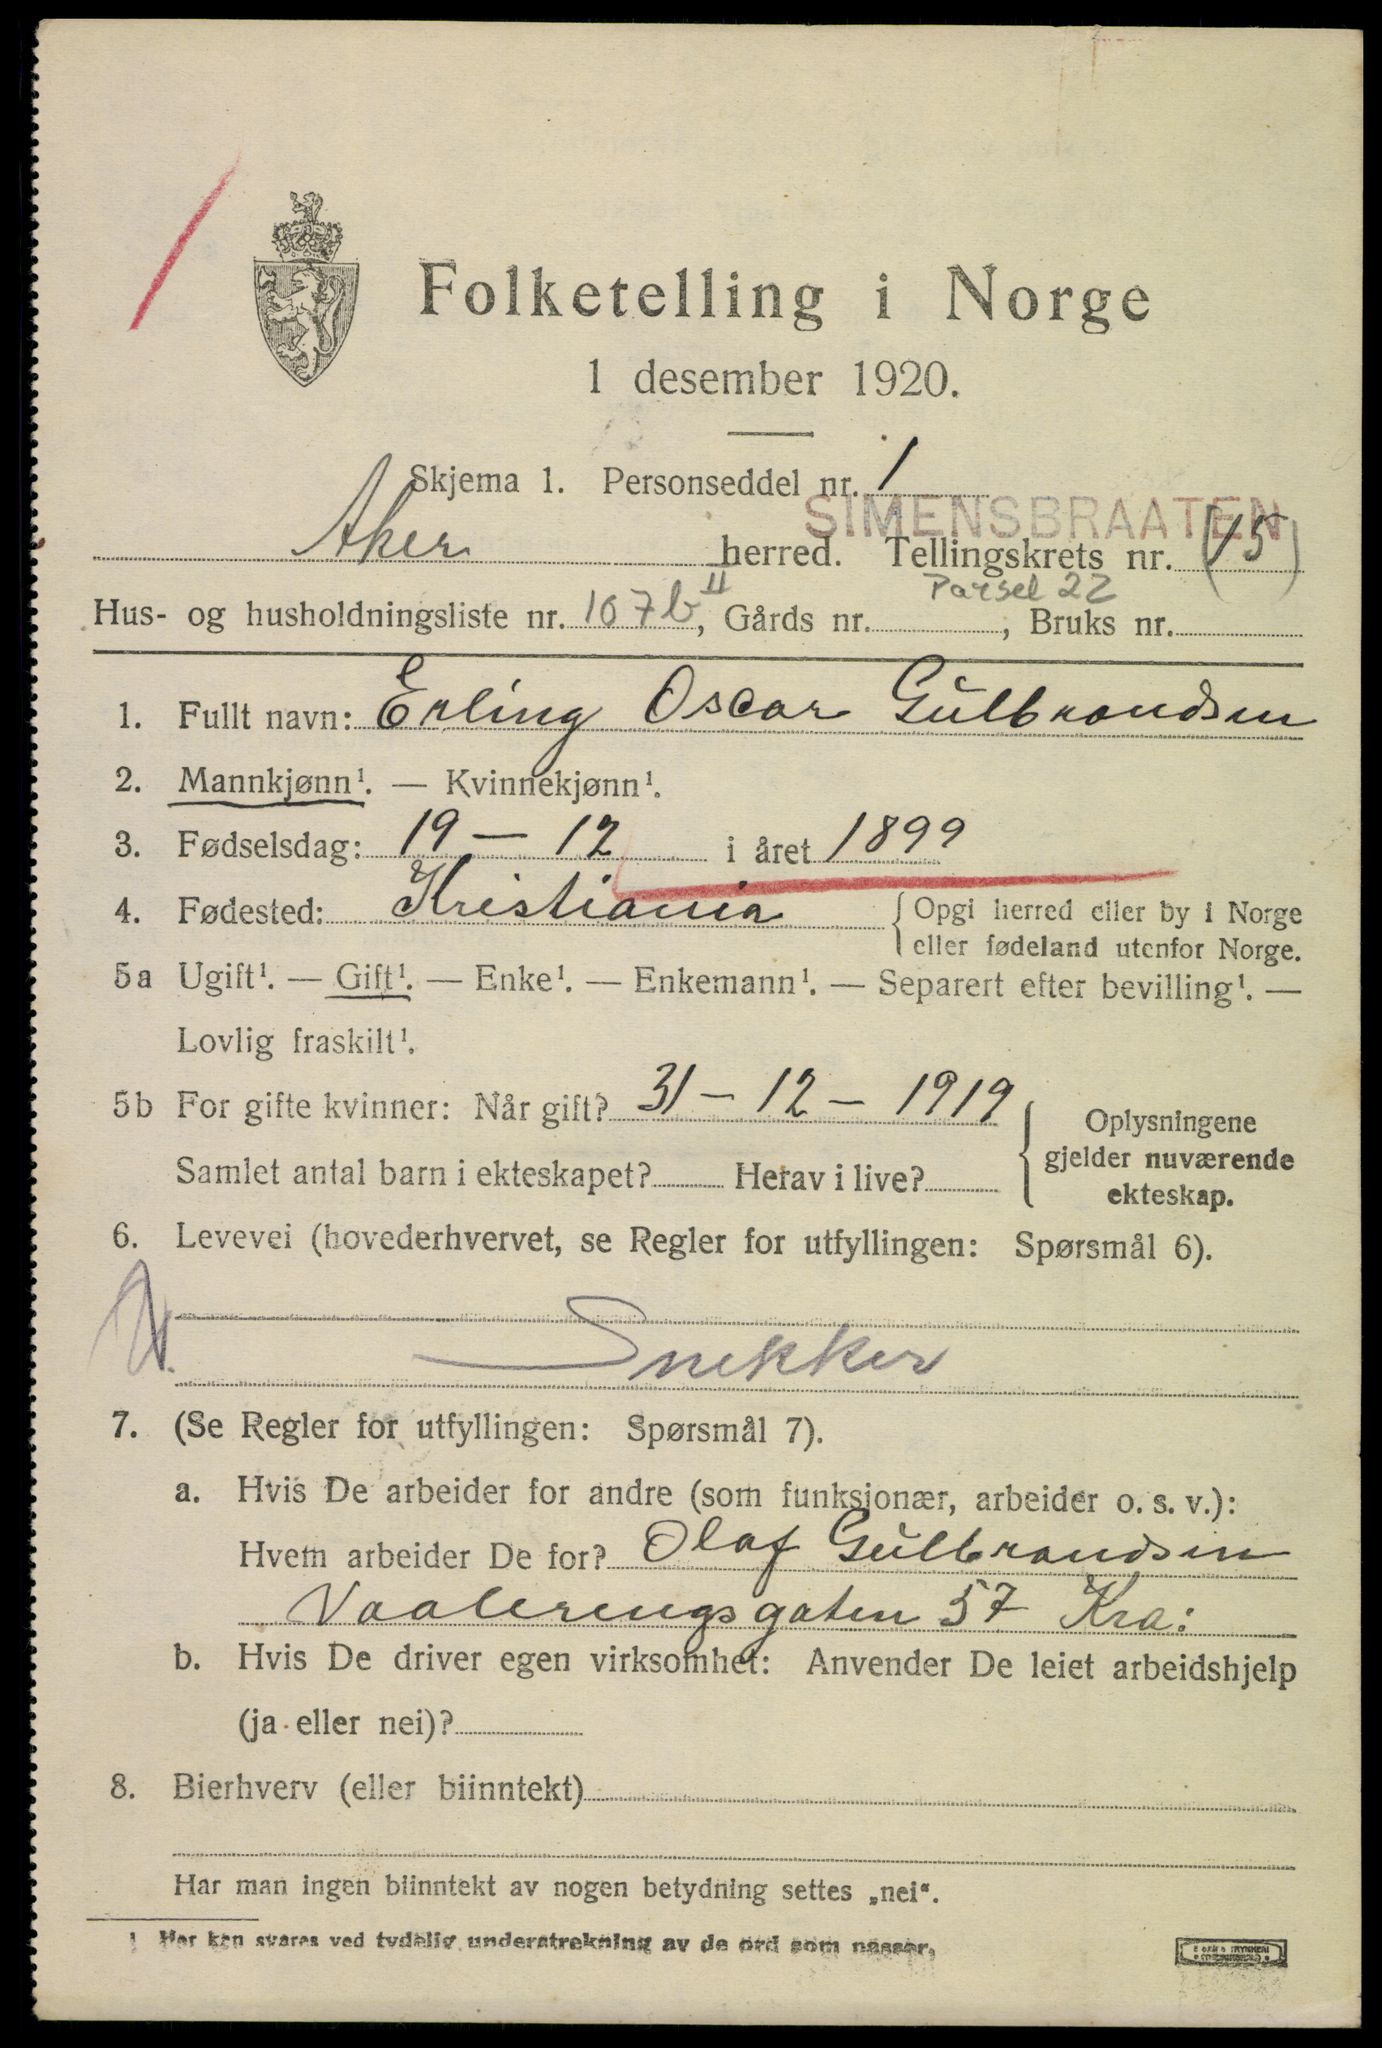 Folketelling i Norge
1 desember 1920.
Skjema 1. Personseddel nr. 1
SIMENSBRAATEN
Aker herred. Tellingskrets nr. (15)
Parsel 22
Hus- og husholdningsliste nr. 107b II, Gårds nr. , Bruks nr.
1. Fullt navn: Erling Oscar Gulbrandsen
2. Mannkjønn¹. — Kvinnekjønn¹.
3. Fødselsdag: 19 — 12 i året 1899
4. Fødested: Kristiania { Opgi herred eller by i Norge
eller fødeland utenfor Norge.
5a Ugift¹. — Gift¹. — Enke¹. — Enkemann¹. — Separert efter bevilling¹. —
Lovlig fraskilt¹.
5b For gifte kvinner: Når gift? 31 — 12 — 1919
Samlet antal barn i ekteskapet? Herav i live?
Oplysningene
gjelder nuværende
ekteskap.
6. Levevei (hovederhvervet, se Regler for utfyllingen: Spørsmål 6).
Snekker
7. (Se Regler for utfyllingen: Spørsmål 7).
a. Hvis De arbeider for andre (som funksjonær, arbeider o. s. v.):
Hvem arbeider De for? Olaf Gulbrandsen
Vaalerengsgaten 57 Kra:
b. Hvis De driver egen virksomhet: Anvender De leiet arbeidshjelp
(ja eller nei)?
8. Bierhverv (eller biinntekt)
Har man ingen biinntekt av nogen betydning settes „nei“.
1 Her kan svares ved tydelig understrekning av de ord som passer.